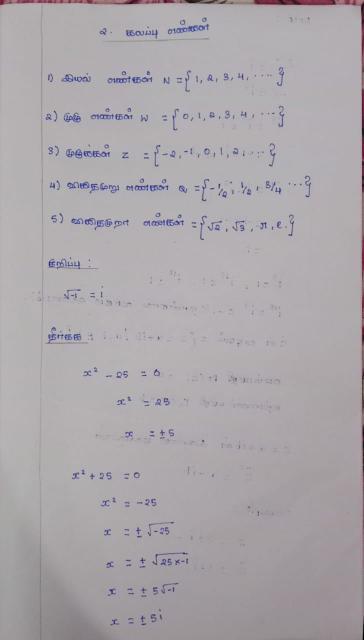 2. கலப்பு எண்கள்
1) இயல் எண்கள் N = {1, 2, 3, 4, ....}
2) முழு எண்கள் W = {0, 1, 2, 3, 4, ....}
3) முழுக்கள் Z = {-2, -1, 0, 1, 2, ...}
4) விகிதமுறு எண்கள் Q = {-1/2, 1/2, 3/4 ...}
5) விகிதமுறா எண்கள் = {√2, √3, π, e.}
குறிப்பு :
√-1 = i
தீர்க்க :
x² - 25 = 0
x² = 25
x = ±5
x² + 25 = 0
x² = -25
x = ± √-25
x = ± √25×-1
x = ± 5√-1
x = ± 5i